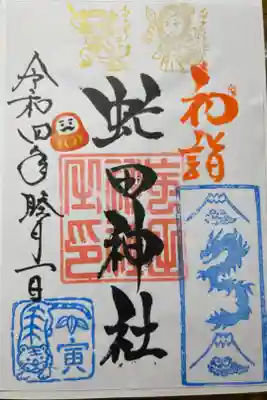 初詣
虻田神社
令和四年睦月一日
寅